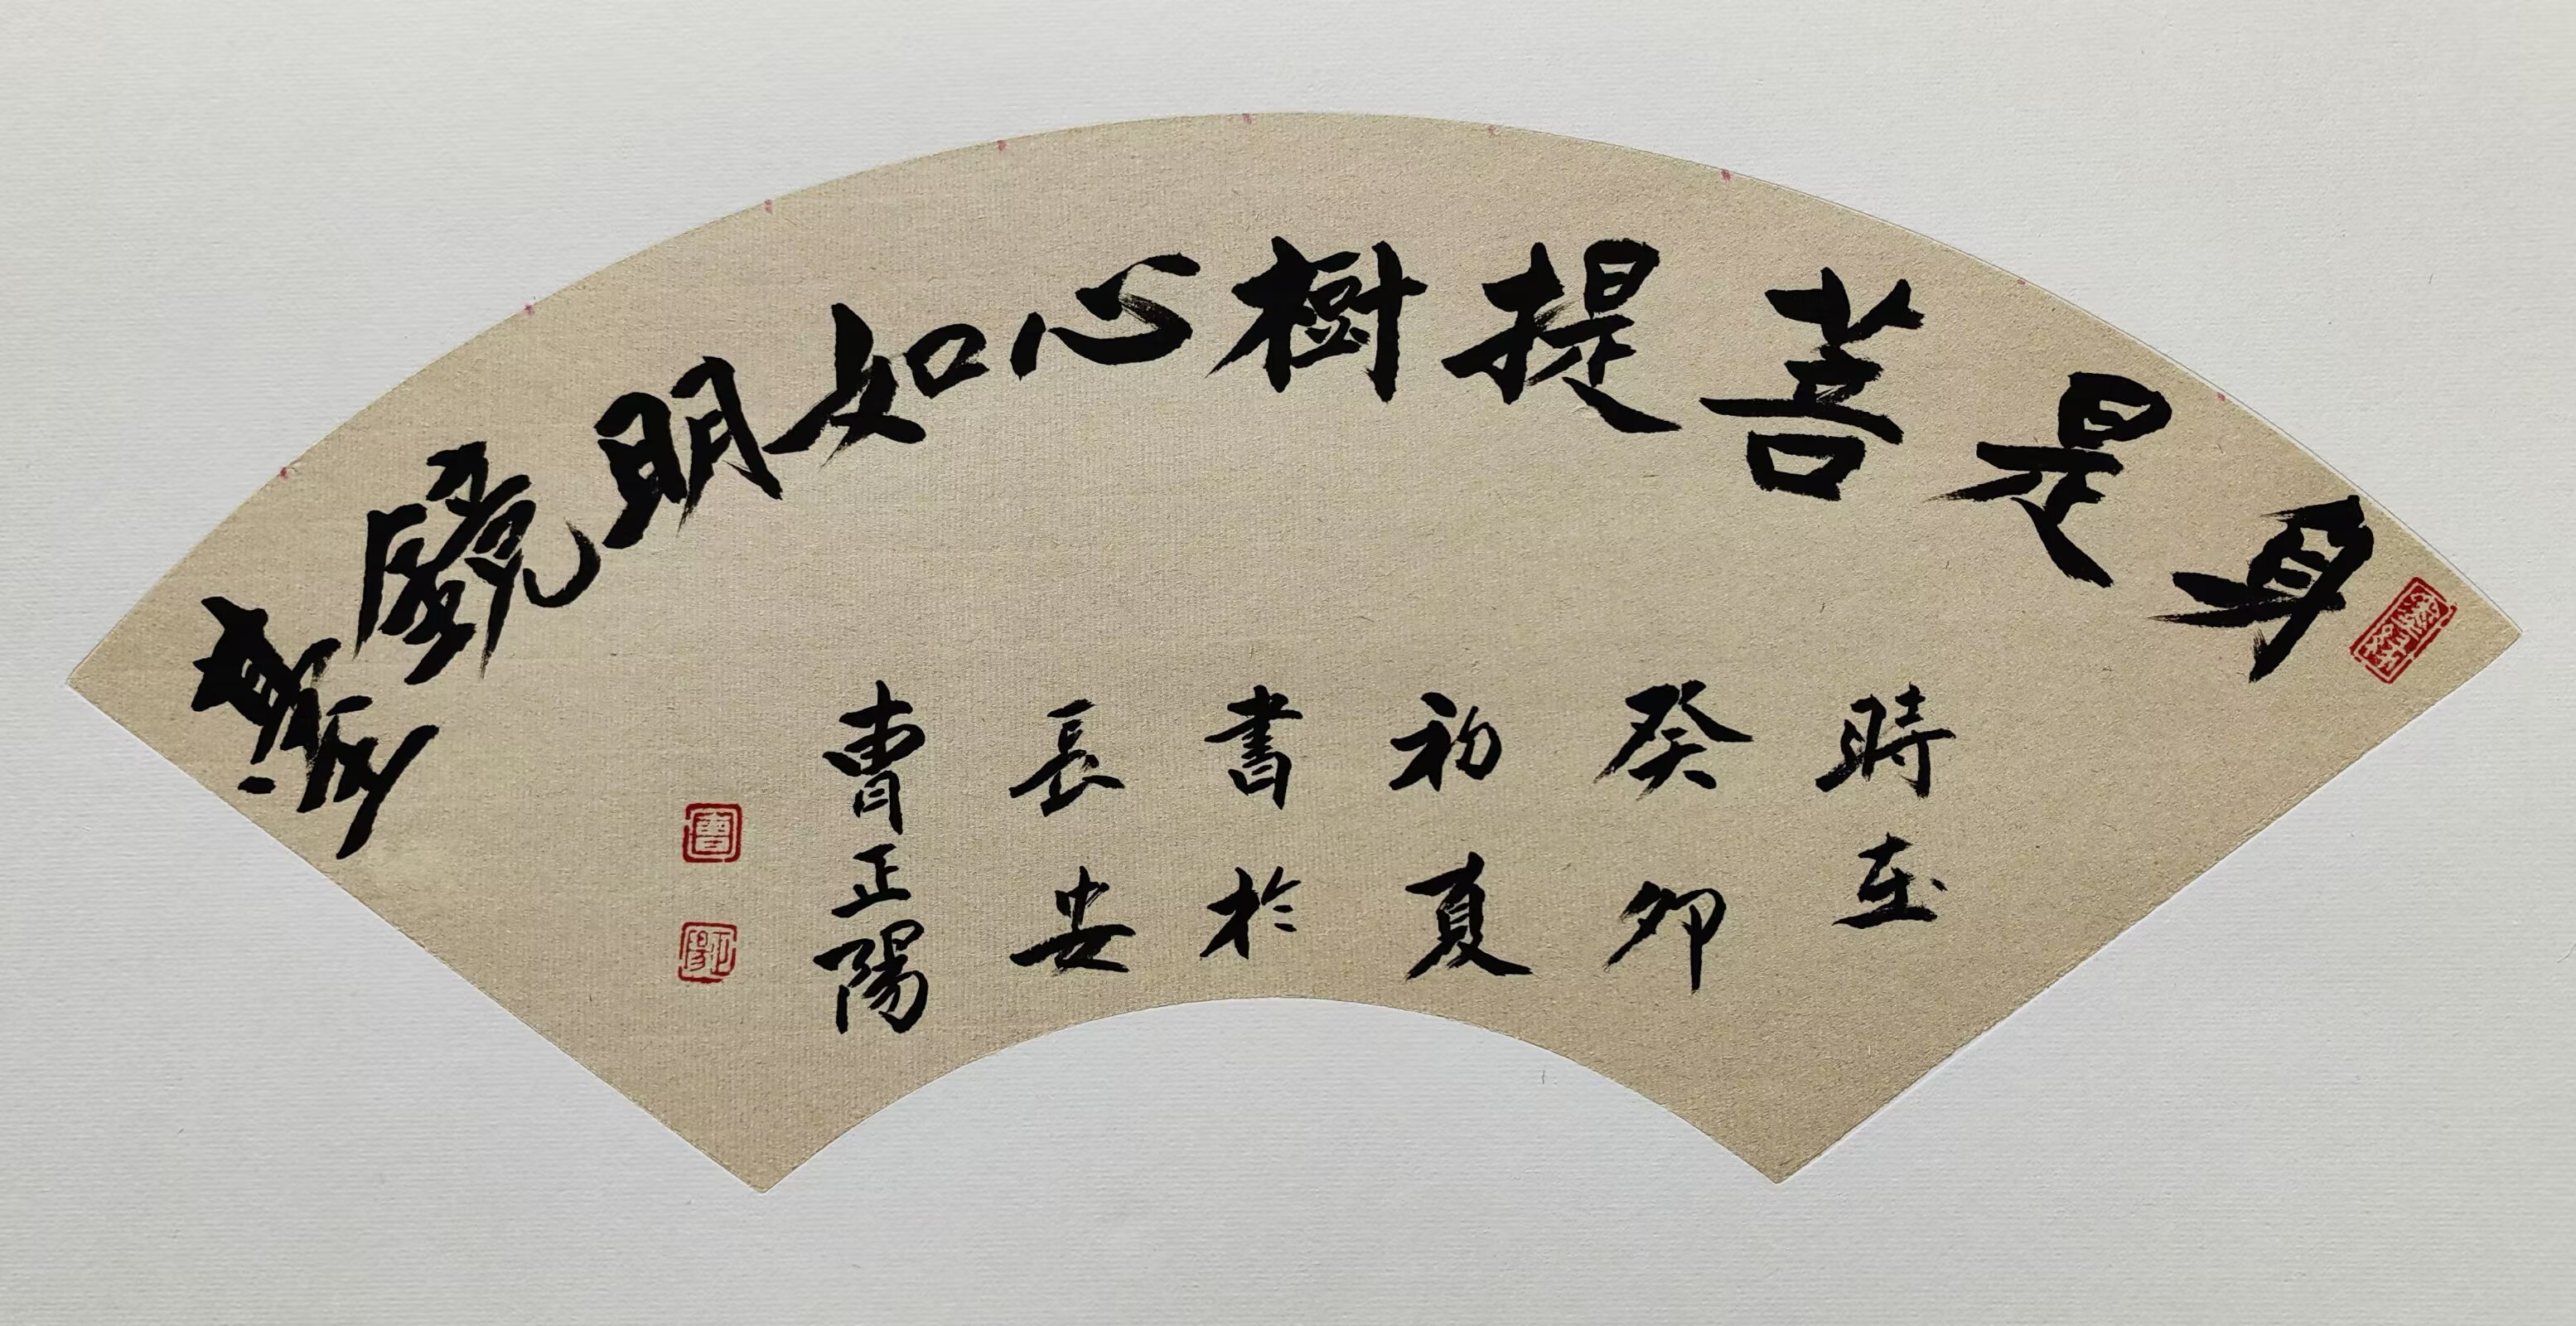 身是菩提樹心如明鏡臺
時在
癸卯
初夏
書於
長安
曹正陽
曹